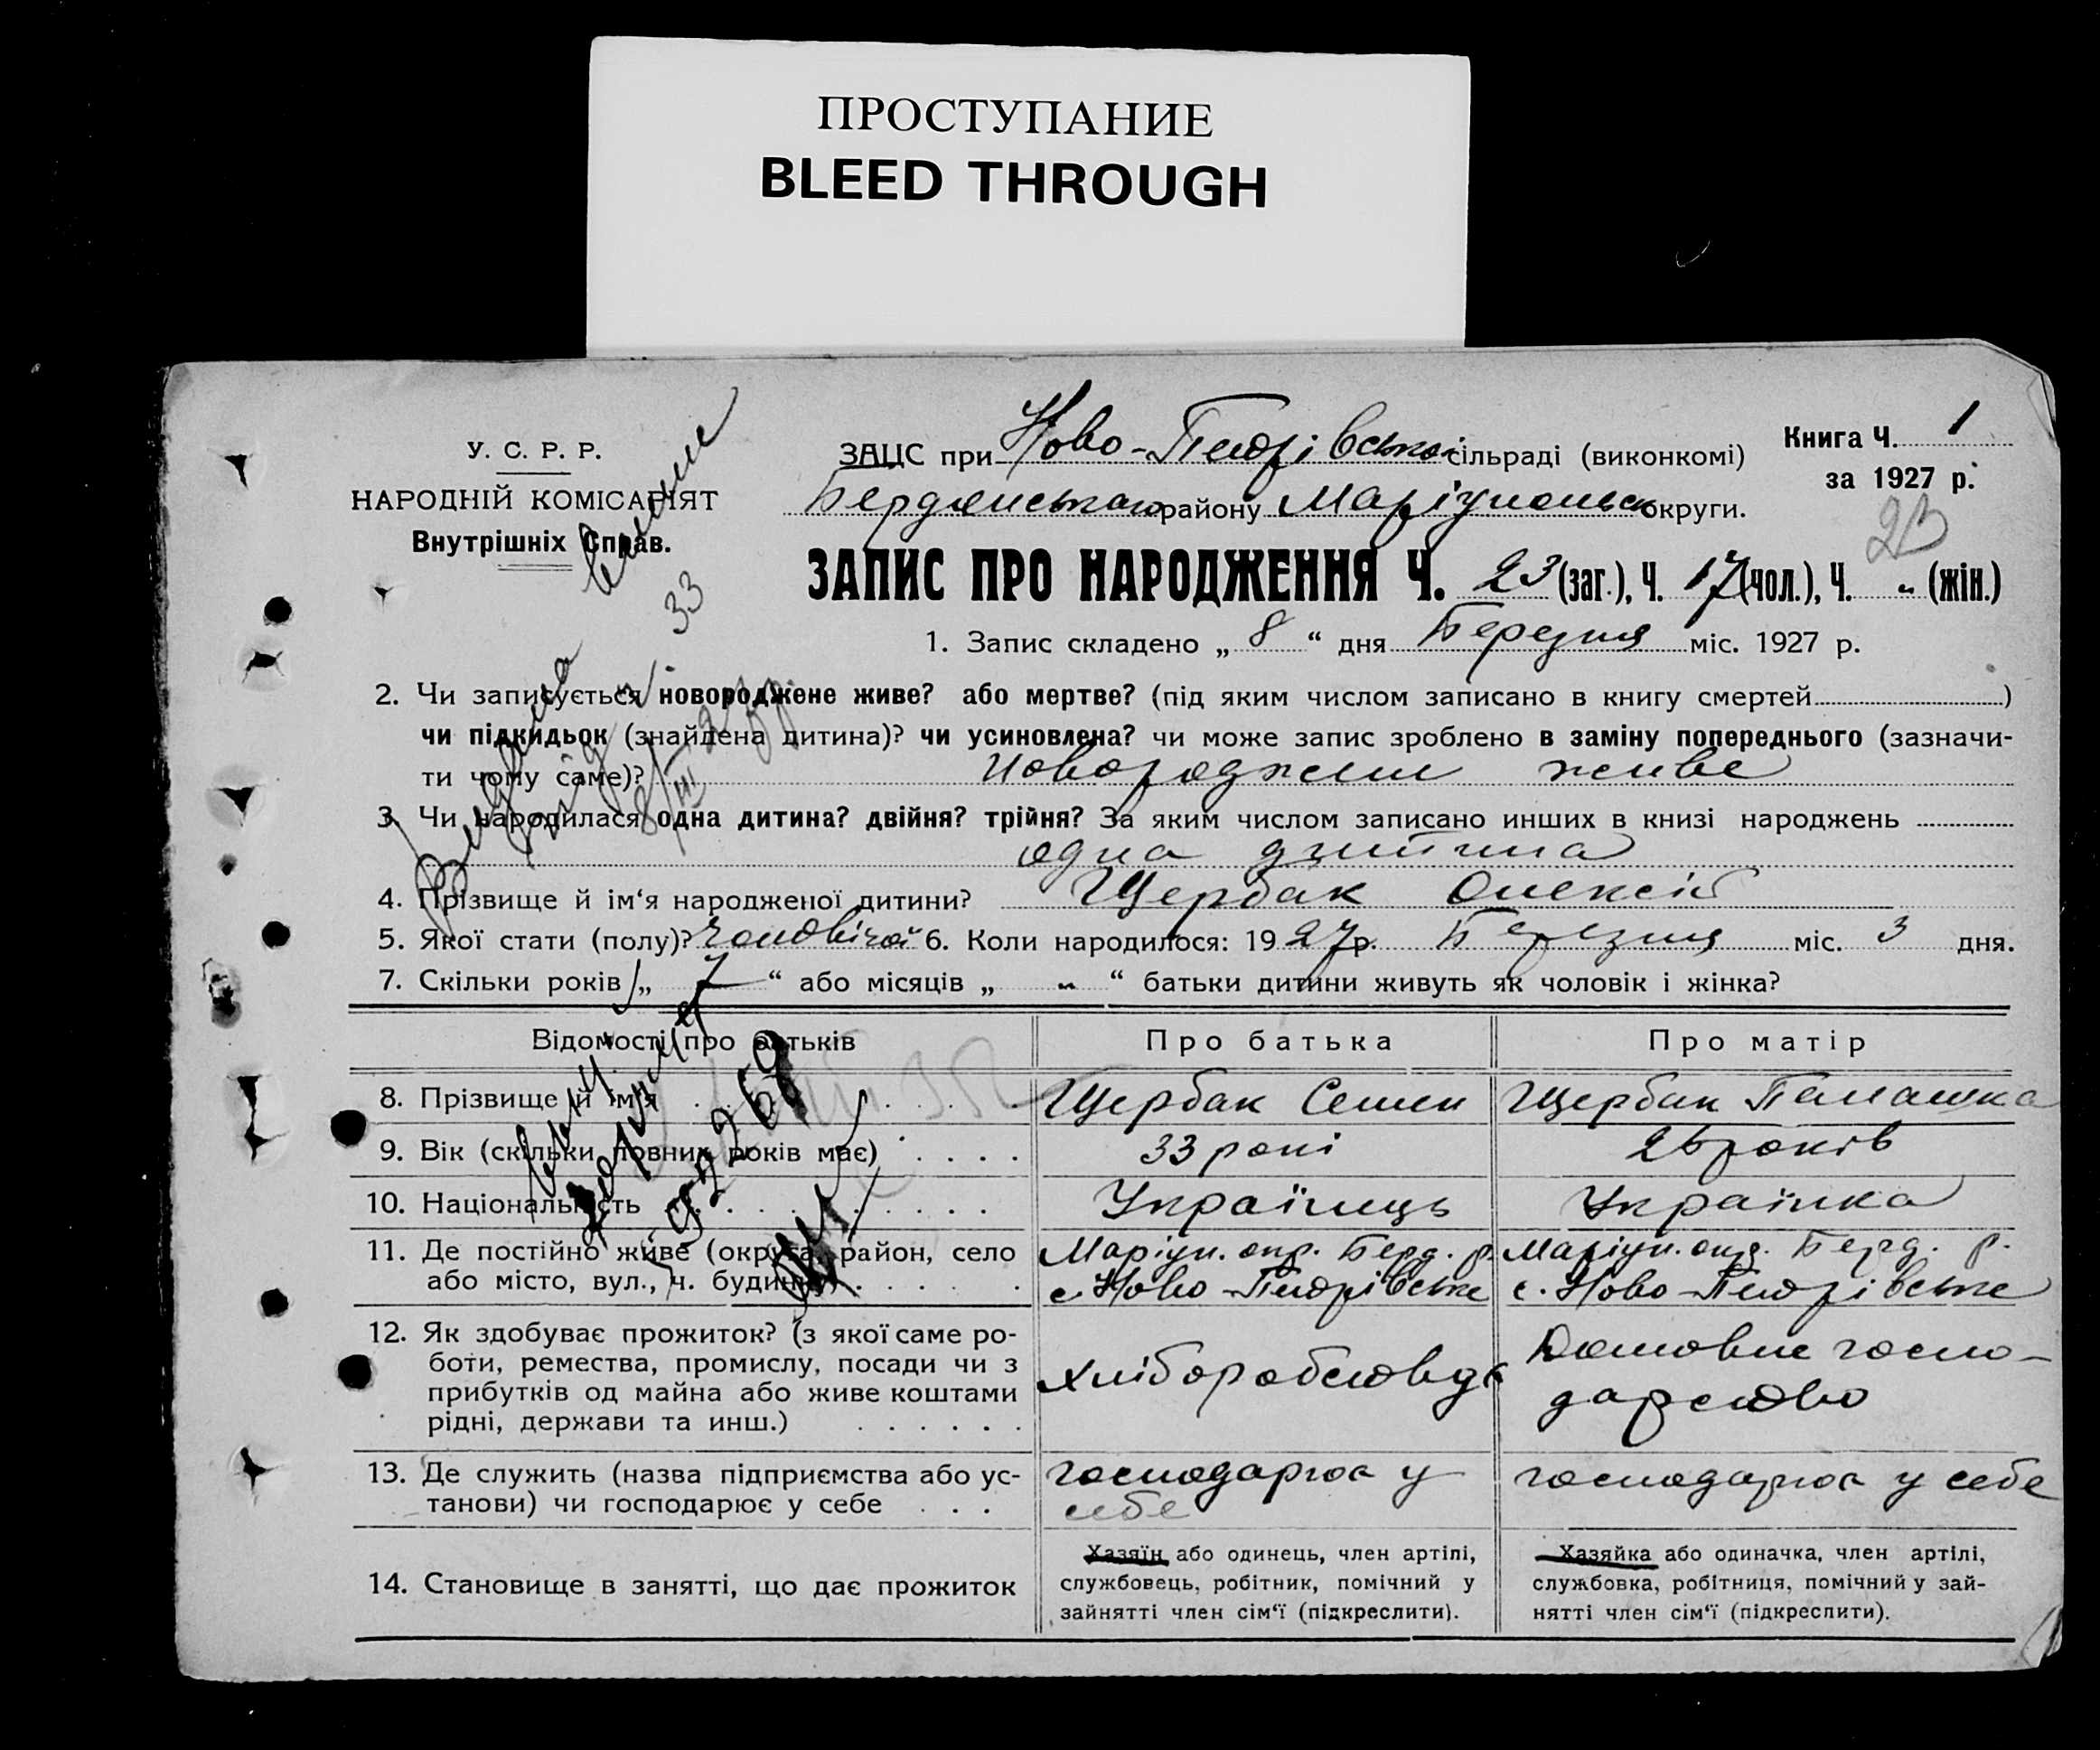 ПРОСТУПАНИЕ
BLEED THROUGH
У. С. Р. Р.
НАРОДНІЙ КОМІСАРІЯТ
Внутрішніх Справ.
ЗАЦС при Ново-Петрівській сільраді (виконкомі)
Бердянського району Маріупольськ округи.
Книга Ч. 1
за 1927 р.
23
ЗАПИС ПРО НАРОДЖЕННЯ Ч. 23 (заг.), Ч. 17 (чол.), Ч. " (жін.)
1. Запис складено „ 8 “ дня Березня міс. 1927 р.
2. Чи записується новороджене живе? або мертве? (під яким числом записано в книгу смертей )
чи підкидьок (знайдена дитина)? чи усиновлена? чи може запис зроблено в заміну попереднього (зазначи-
ти чому саме)? новороджене живе
3. Чи народилася одна дитина? двійня? трійня? За яким числом записано инших в книзі народжень
одна дитина
4. Прізвище й ім‘я народженої дитини? Щербак Олексій
5. Якої стати (полу)? чоловічої 6. Коли народилося: 1927 р. Березня міс. 3 дня.
7. Скільки років „ 7 “ або місяців „ " “ батьки дитини живуть як чоловік і жінка?
Відомості про батьків
Про батька
Про матір
8. Прізвище й ім‘я
Щербак Семен
Щербак Палашка
9. Вік (скільки повних років має)
33 рокі
26 років
10. Національність
Українець
Українка
11. Де постійно живе (округа, район, село
або місто, вул., ч. будинку)
Маріуп. окр. Берд. р.
с. Ново-Петрівське
Маріуп. окр. Берд. р.
с. Ново-Петрівське
12. Як здобуває прожиток? (з якої саме ро-
боти, ремества, промислу, посади чи з
прибутків од майна або живе коштами
рідні, держави та инш.)
Домовне госпо-
дарство
13. Де служить (назва підприємства або ус-
танови) чи господарює у себе
господарює у
себе
господарює у себе
14. Становище в занятті, що дає прожиток
Хазяїн або одинець, член артілі,
службовець, робітник, помічний у
зайнятті член сім‘ї (підкреслити).
Хазяйка або одиначка, член артілі,
службовка, робітниця, помічний у зай-
нятті член сім‘ї (підкреслити).